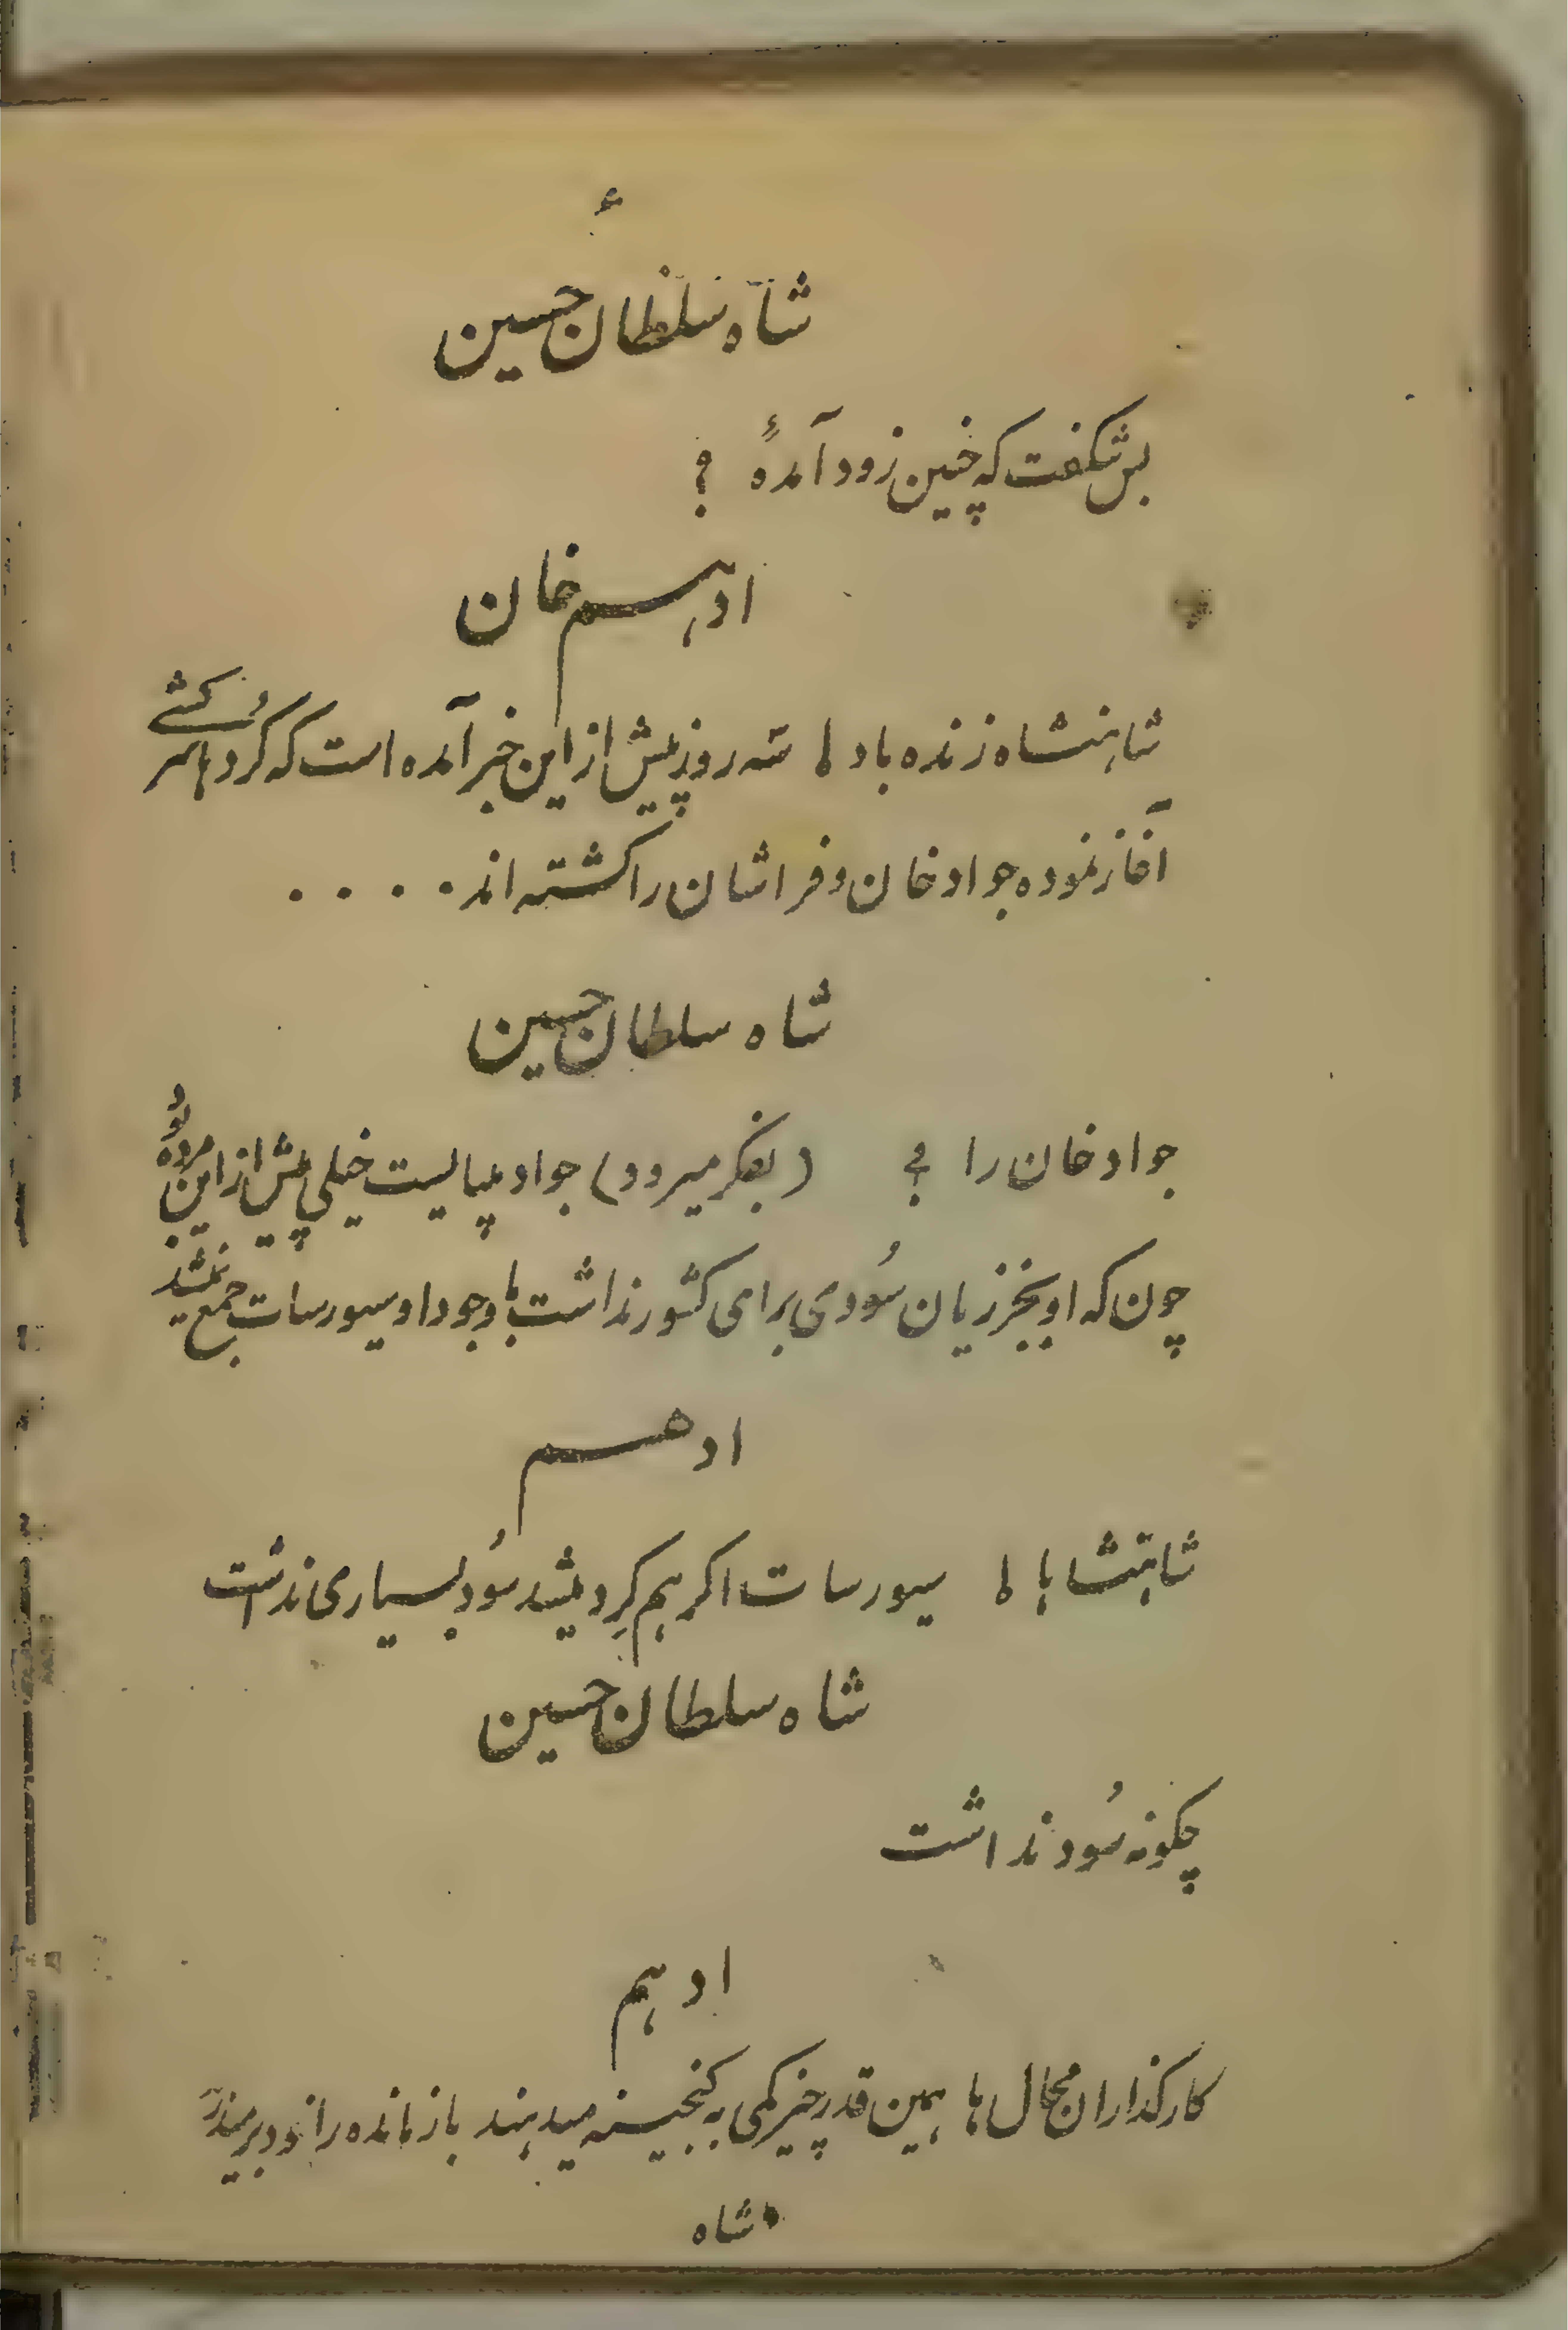 ء
شاه سلطان حسین
بس شکفت که چنین زود آمدهٔ ؟
ادهم خان
شاهنشاه زنده باد ! سه روز پیش از این خبر آمده است که کردها سرکشی
آغاز نموده جواد خان و فراشان را کشته اند . . . .
شاه سلطان حسین
جواد خان را ؟ (بفکر میرود) جواد میبایست خیلی پیش از این مرده بُود
چون که او بجز زیان سُودی برای کشور نداشت با وجود او سیورسات جمع نمیشد
ادهم
شاهنشاها ! سیورسات اکر هم کِرد میشد سُود بسیاری نداشت
شاه سلطان حسین
چکونه سُود نداشت
ادهم
کارکذاران محال ها همین قدر چیز کمی به کنجینه میدهند بازمانده را خود بر میدارند
شاه